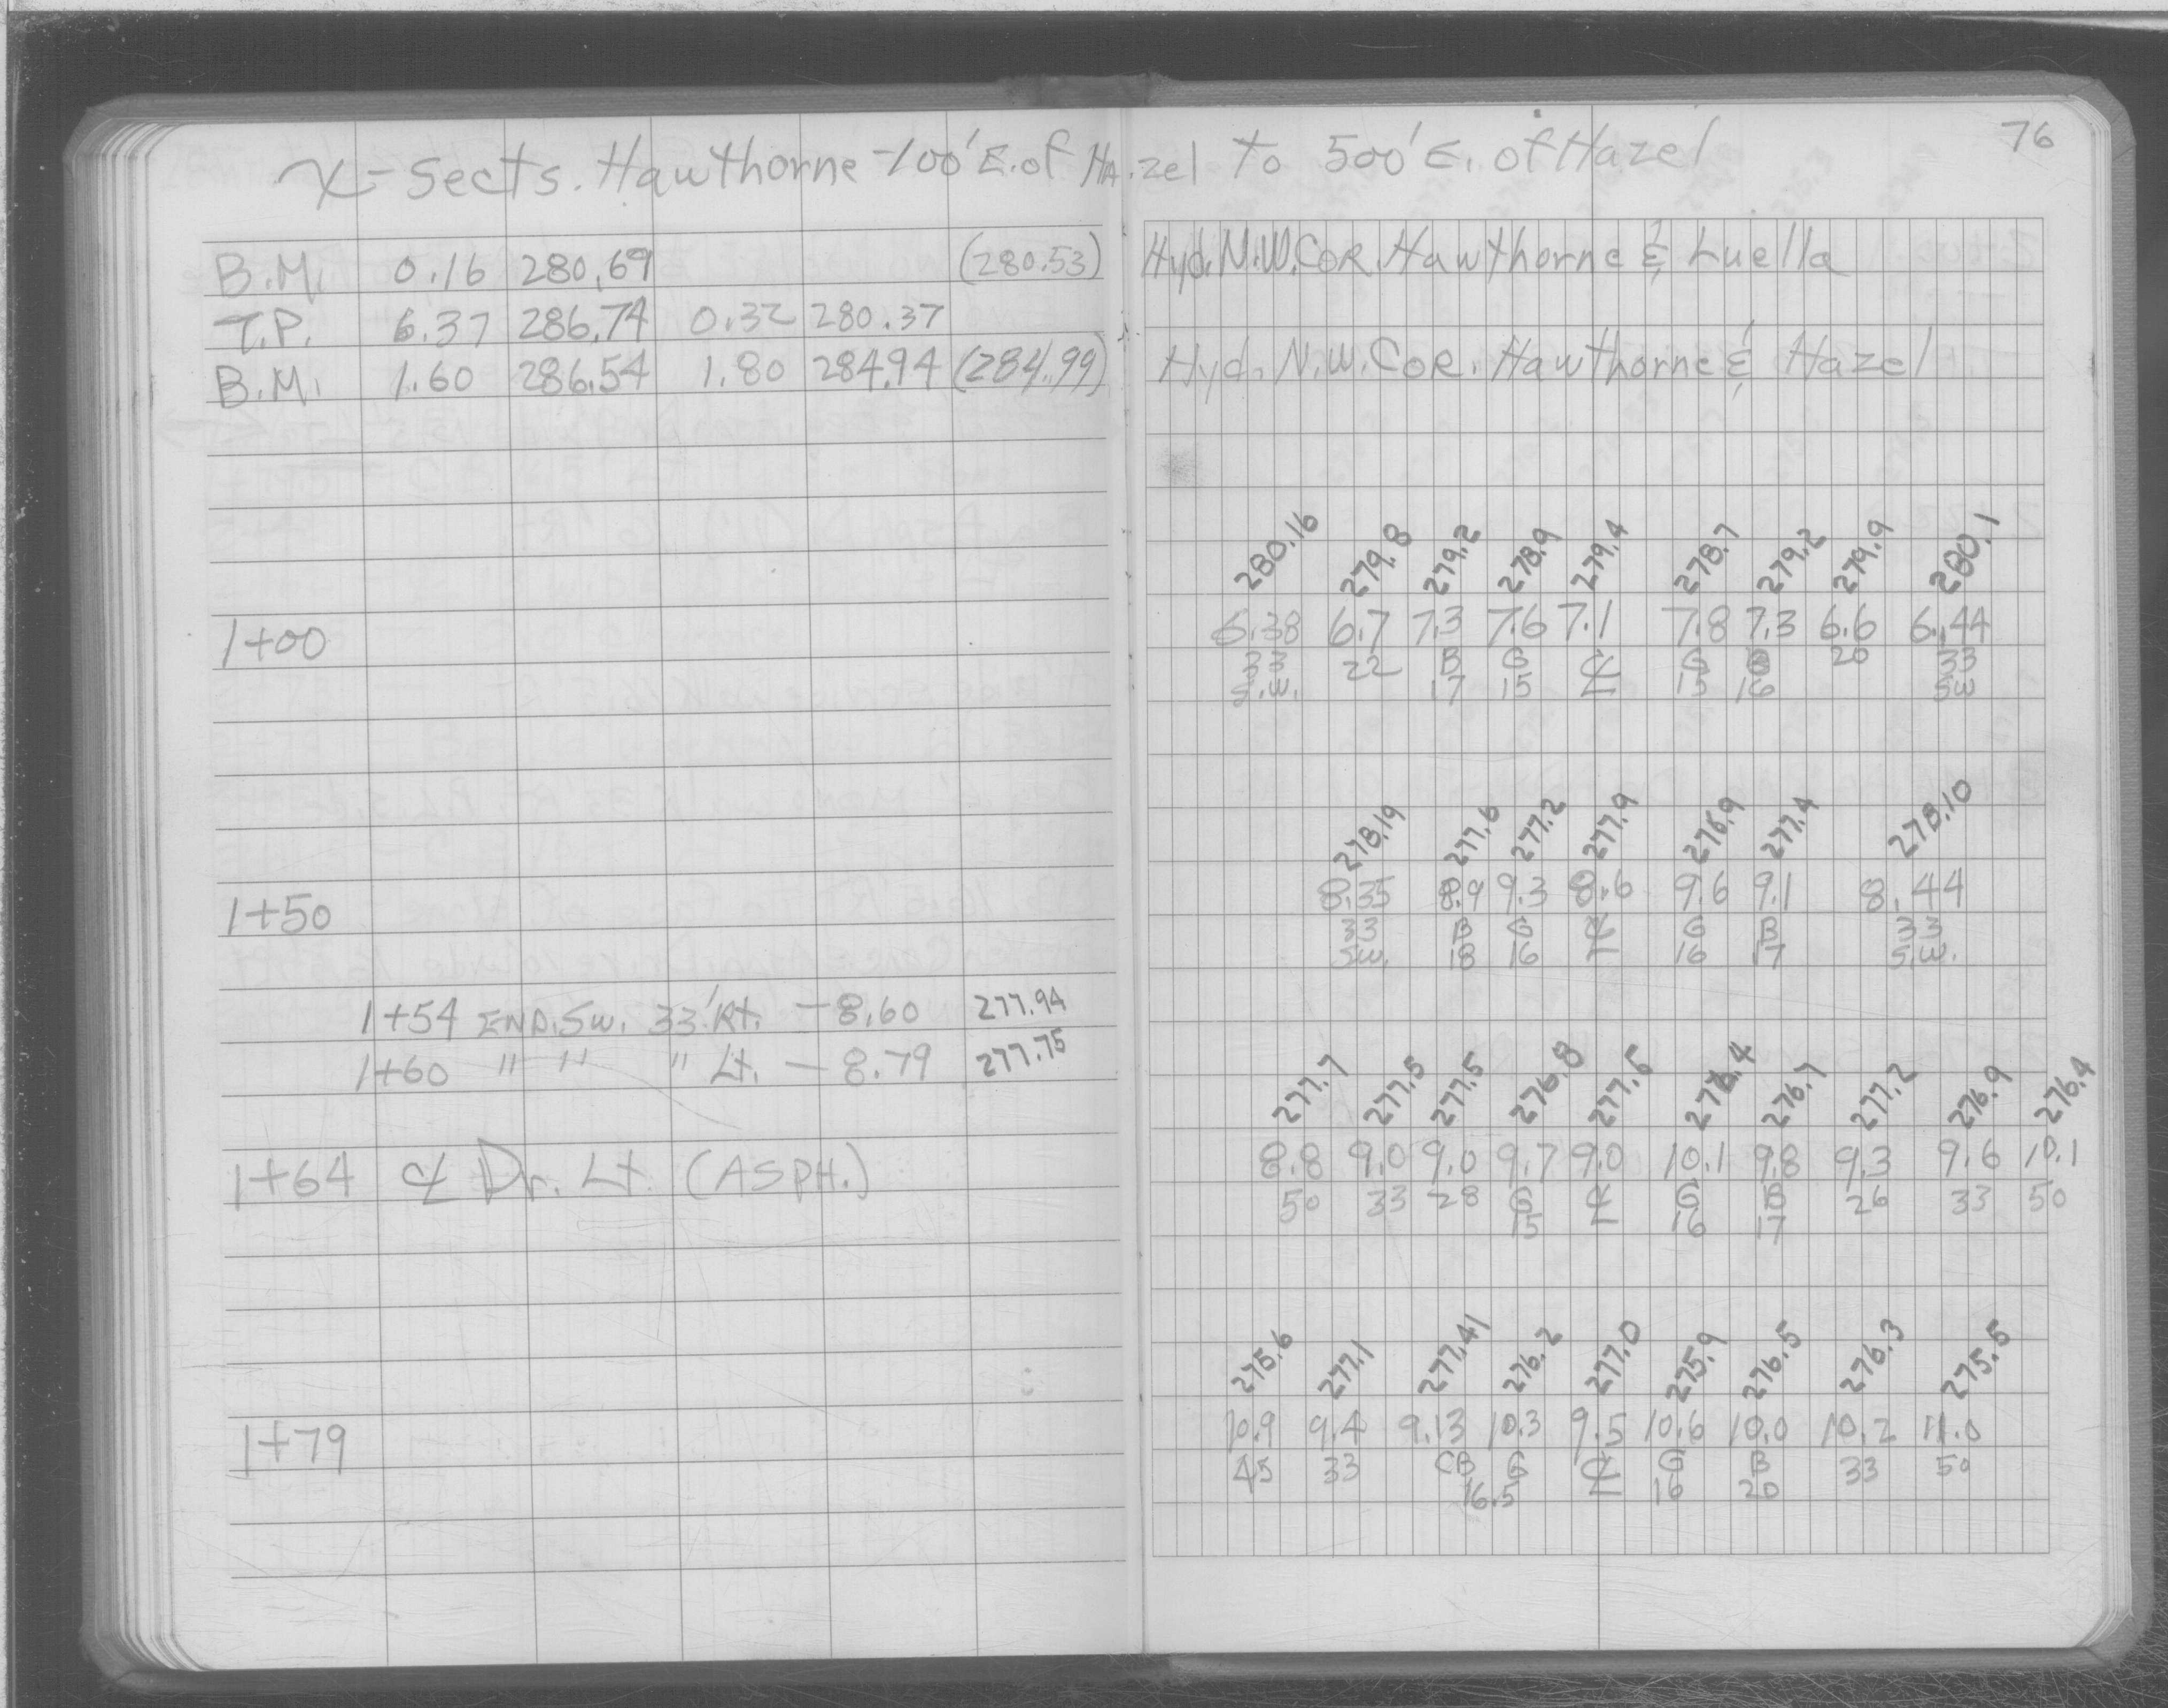 76
X-Sects. Hawthorne -100' E. of Hazel to 500' E. of Hazel
B.M. 0.16 280.69 (280.53) Hyd. N.W. COR. Hawthorne & Luella
T.P. 6.37 286.74 0.32 280.37
B.M. 1.60 286.54 1.80 284.94 (284.99) Hyd. N.W. COR. Hawthorne & Hazel
280.16 279.8 279.2 278.9 279.4 278.7 279.2 279.9 280.1
1+00 6.38 6.7 7.3 7.6 7.1 7.8 7.3 6.6 6.44
33 22 B G ℄ G B 20 33
S.W. 17 15 15 16 SW
278.19 277.6 277.2 277.9 276.9 277.4 278.10
1+50 8.35 8.9 9.3 8.6 9.6 9.1 8.44
33 B G ℄ G B 33
SW. 18 16 16 17 S.W.
1+54 END. SW. 33' Rt. -8.60 277.94
1+60 " " " Lt. -8.79 277.75
277.7 277.5 277.5 276.8 277.5 276.4 276.7 277.2 276.9 276.4
1+64 ℄ Dr. Lt. (ASPH.) 8.8 9.0 9.0 9.7 9.0 10.1 9.8 9.3 9.6 10.1
50 33 28 G ℄ G B 26 33 50
15 16 17
275.6 277.1 277.41 276.2 277.0 275.9 276.5 276.3 275.5
1+79 10.9 9.4 9.13 10.3 9.5 10.6 10.0 10.2 11.0
45 33 CB G ℄ G B 33 50
16.5 16 20